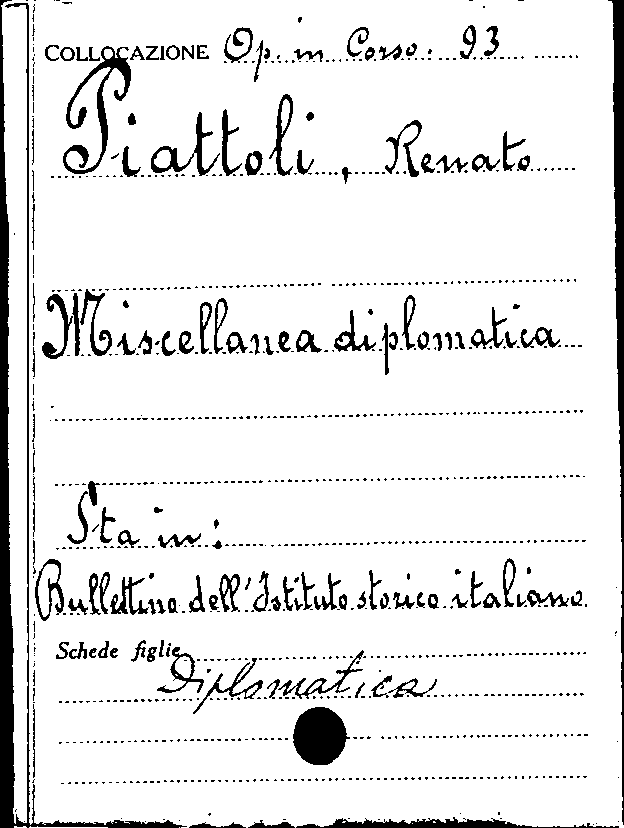 COLLOCAZIONE Op. in Corso. 93
Piattoli, Renato
Miscellanea diplomatica
Sta in:
Bullettino dell'Istituto storico italiano
Schede figlie
Diplomatica